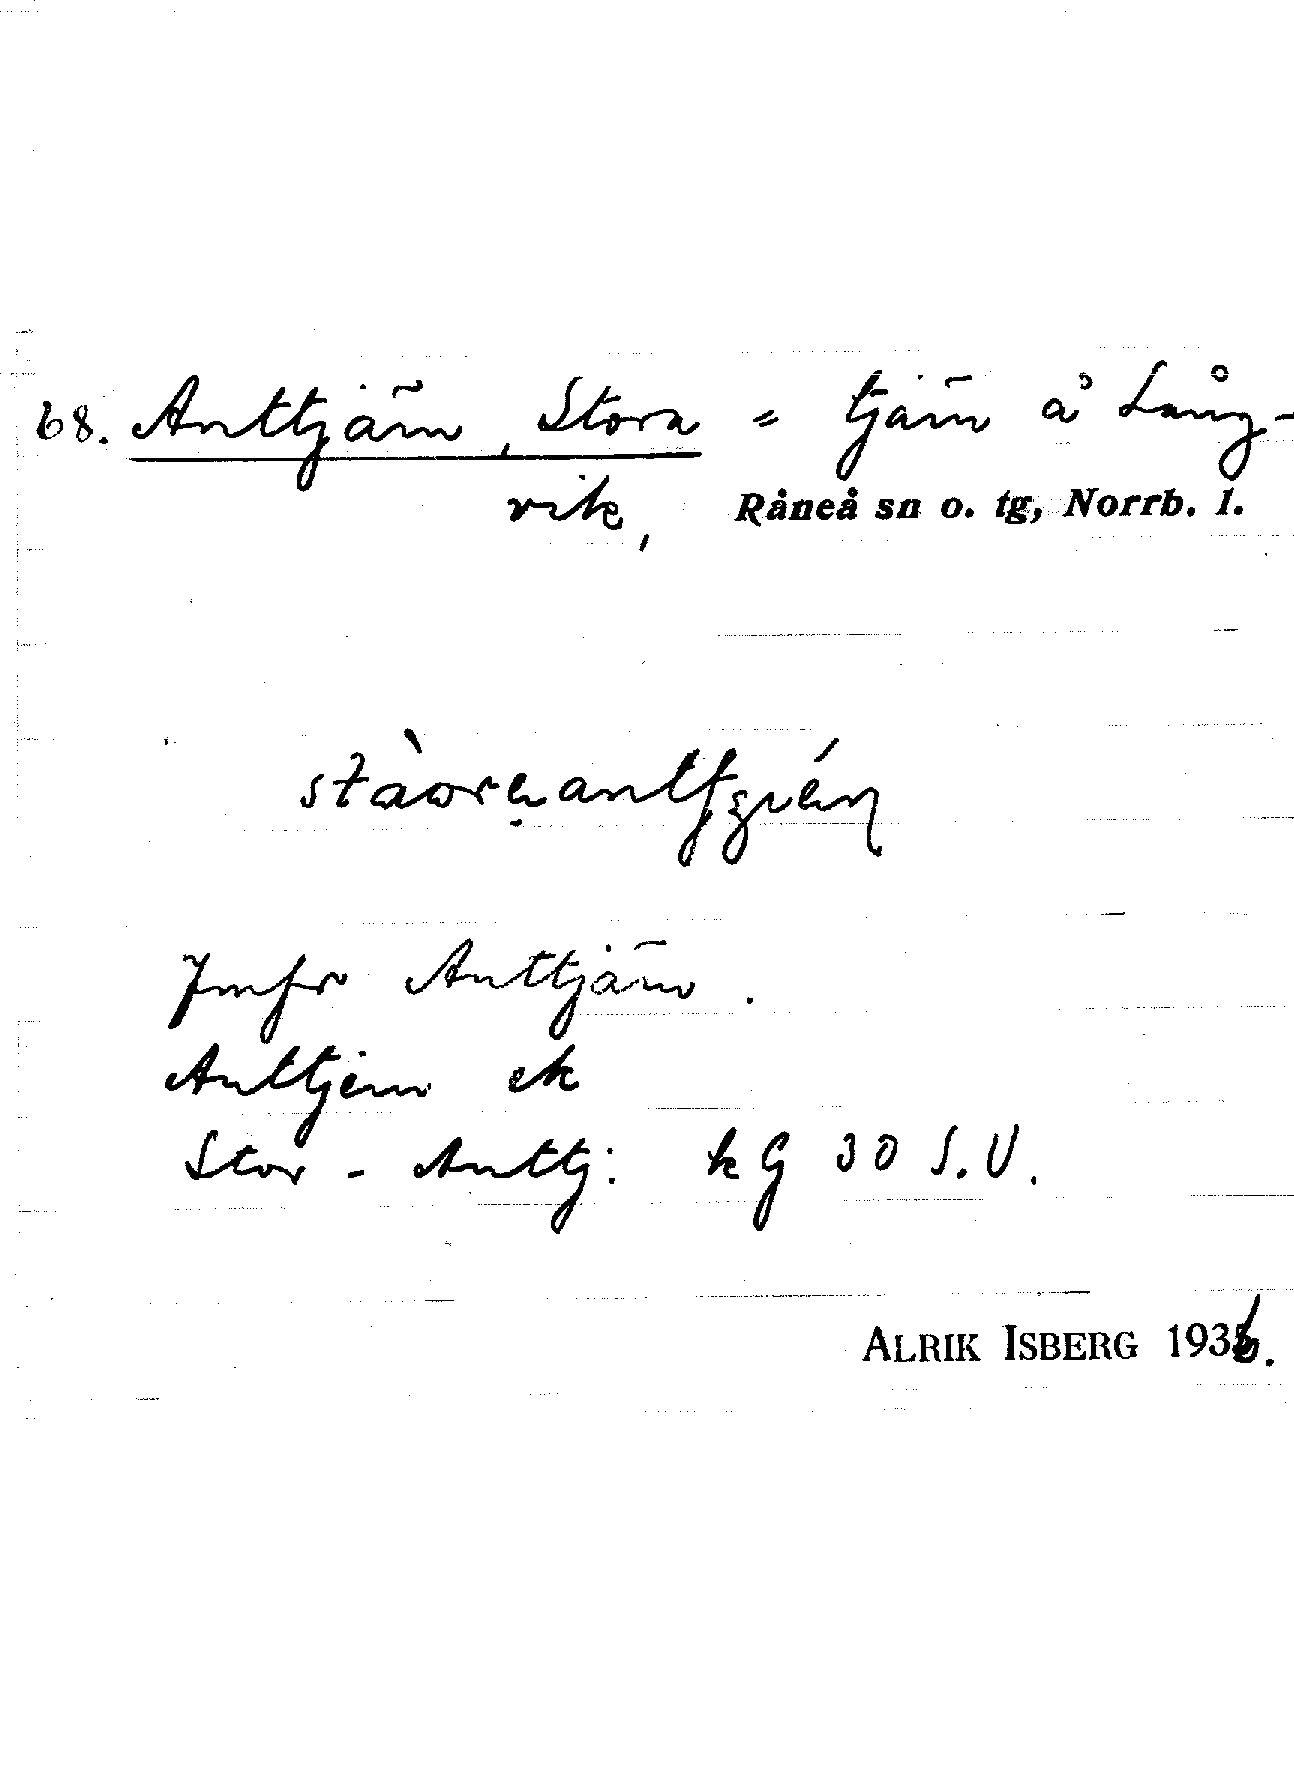 68. Anttjärn, Stora = tjärn å Lång-
vik, Råneå sn o. tg, Norrb. l.
Jmfr Anttjärn.
Anttjärn ek
Stor-Anttj: kG 30 S.V.
ALRIK ISBERG 1936.